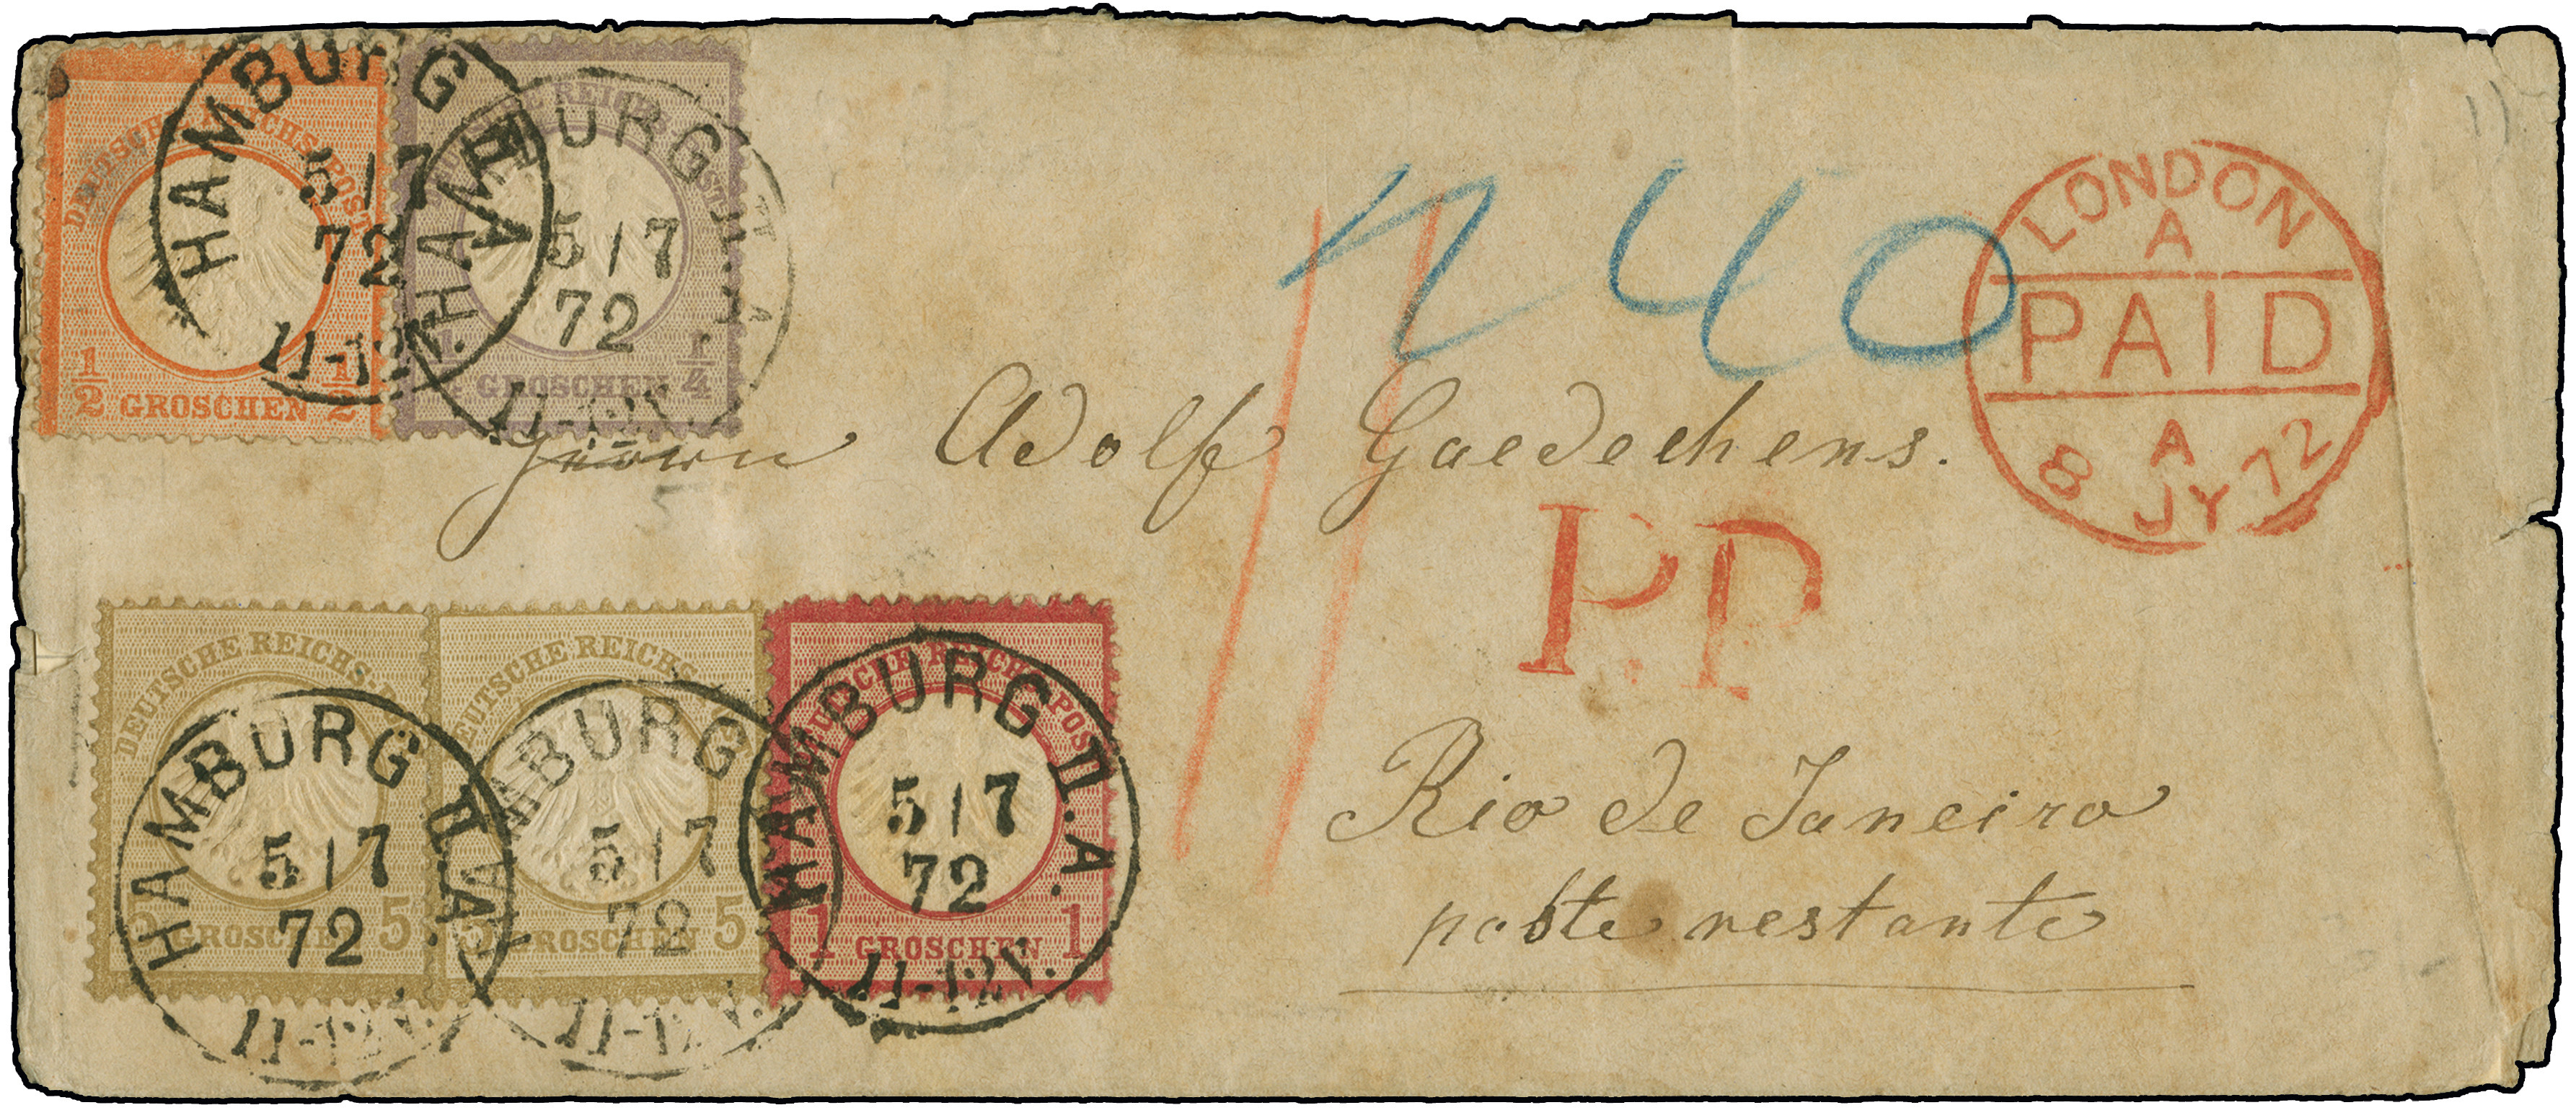 DEUTSCHE REICHS-POST
1/2 GROSCHEN 1/2
HAMBURG II A.
5/7
72
11-12V.
DEUTSCHE REICHS-POST
1/4 GROSCHEN 1/4
HAMBURG II. A
5/7
72
11-12V.
40
LONDON
A
PAID
A
8 JY 72
Herrn Adolf Gaedechens.
P.P.
DEUTSCHE REICHS-POST
5 GROSCHEN 5
HAMBURG II. A.
5/7
72
11-12V.
DEUTSCHE REICHS-POST
5 GROSCHEN 5
HAMBURG
5/7
72
11-12V.
DEUTSCHE REICHS-POST
1 GROSCHEN 1
HAMBURG II. A.
5/7
72
11-12V.
Rio de Janeiro
poste restante